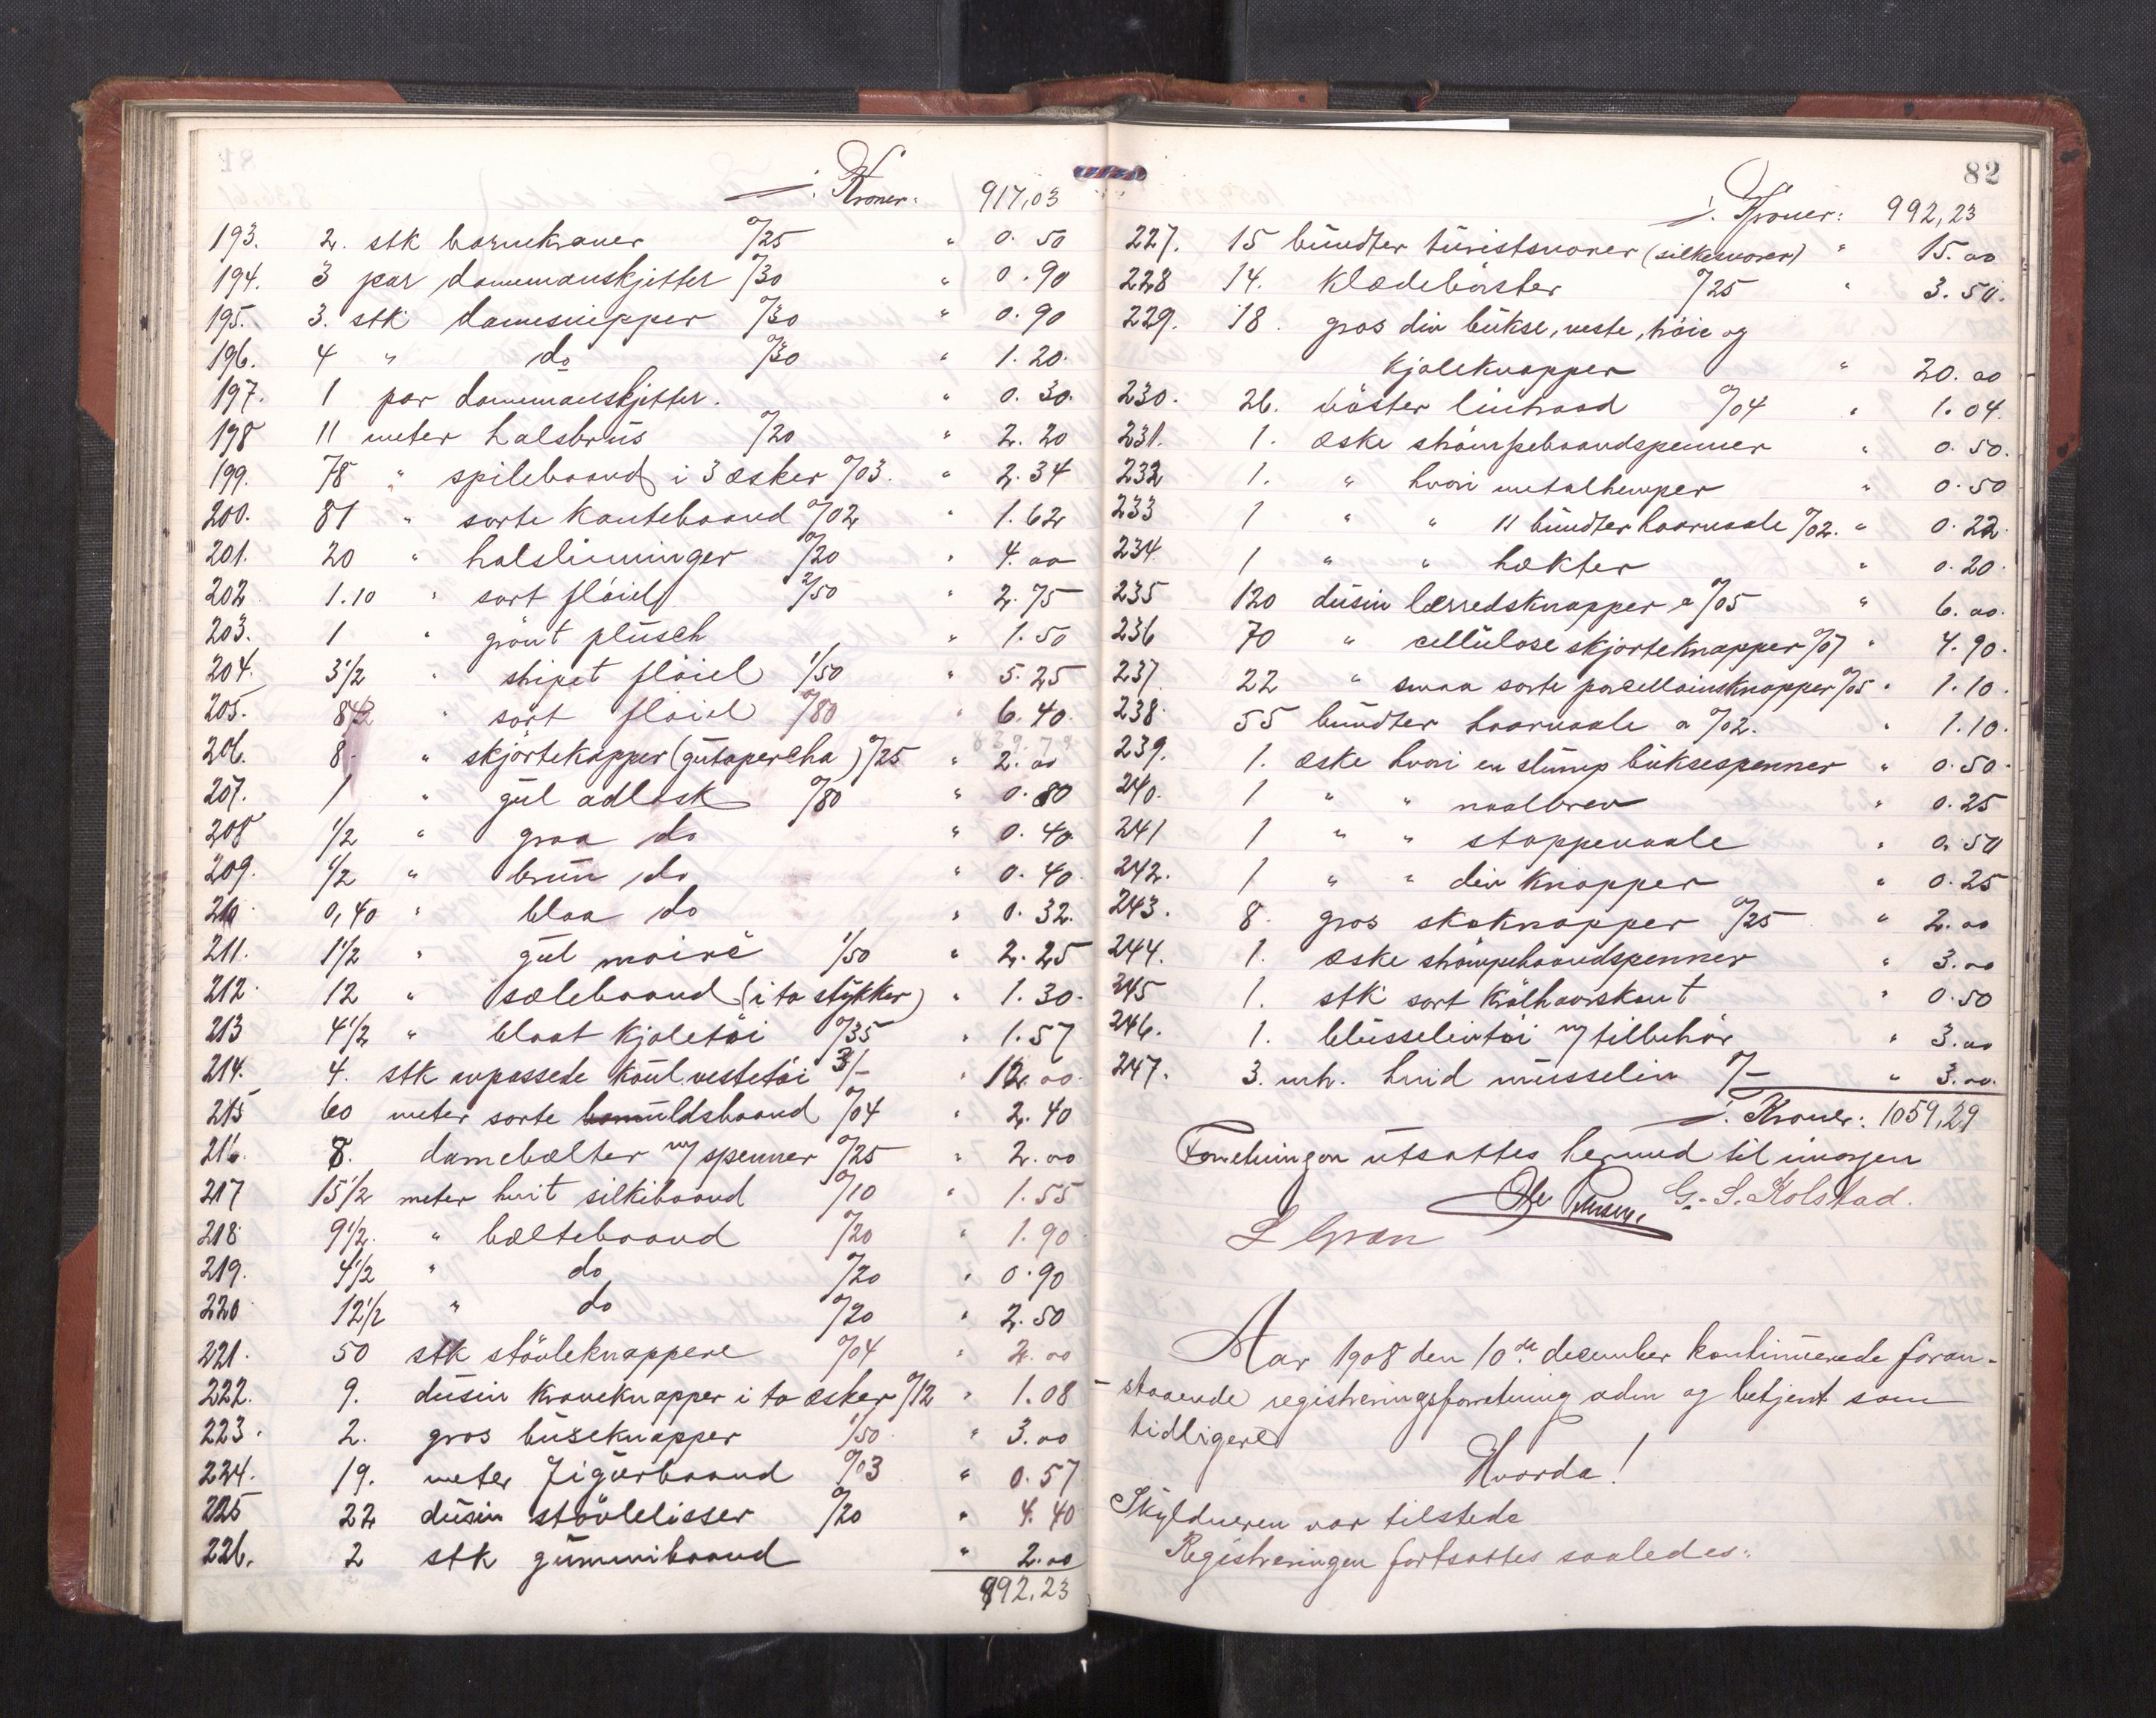 ./. Kroner: 917,03
193. 2. stk barnekraver 0/25 " 0.50
194. 3 par damemanskjetter 0/30 " 0.90
195. 3. stk damesnipper 0/30 " 0.90
196. 4 " do 0/30 " 1.20.
197. 1 par damemanskjetter. " 0.30.
198 11 meter halsbrus 0/20 " 2.20
199. 78 " spilebaand i 3 æsker 0/03. " 2.34
200. 81 " sorte kantebaand 0/02 " 1.62
201. 20 " halslinninger 0/20 " 4.00
202 1.10 " sort flöiel 2/50 " 2.75
203. 1 " grönt plusch " 1.50
204. 3 1/2 " stripet flöiel 1/50 " 5.25
205. 8 " sort flöiel 0/80 " 6.40.
206. 8. " skjörtekapper (gutapercha) 0/25 " 2.00
207. 1 " gul adlask 0/80 " 0.80
208 1/2 " graa do " 0.40
209. 1/2 " brun do " 0.40.
210 0,40 " blaa do " 0.32.
211. 1 1/2 " gul moiré 1/50 " 2.25
212. 12 " sælebaand (i to stykker) " 1.30.
213 4 1/2 " blaat kjoletöi 0/35 " 1.57
214. 4. stk avpassede koul. vestetöi 3/- " 12.00.
215 60 meter sorte bomuldsbaand 0/04 " 2.40
216. 8. damebælter m/ spenner 0/25 " 2.00
217 15 1/2 meter hvit silkibaand 0/10 " 1.55
218 9 1/2. " bæltebaand 0/20 " 1.90
219. 4 1/2 " do 0/20 " 0.90
220 12 1/2 " do 0/20 " 2.50
221. 50 stk stövleknappere 0/04 " 2.00
222. 9. dusin kraveknapper i to æsker 0/12 " 1.08
223. 2. gros buseknapper 1/50 " 3.00
224. 19. meter figurbaand 0/03 " 0.57
225 22 dusin stövlelisser 0/20 " 4.40
226. 2 stk gummibaand " 2.00
992,23
82
./. Kroner: 992,23
227. 15 bundter turistsnorer (silkesnorer) " 15.00
228 14. klædebörster 0/25 " 3.50.
229. 18. gros div bukse, veste, tröie og
kjoleknapper " 20.00
230. 26. böster lintraad 0/04 " 1.04.
231. 1. æske strömpebaandspenner " 0.50.
232 1. " hvori metalhemper " 0.50
233 1 " " 11 bundter haarnaale 0/02. " 0.22
234. 1 " " hækter " 0.20.
235 120 dusin lærredsknapper a 0/05 " 6.00.
236 70 " cellulose skjorteknapper 0/07 " 4.90.
237. 22 " smaa sorte porcellainsknapper 0/05 " 1.10.
238. 55 bundter haarnaale a 0/02. " 1.10.
239. 1. æske hvori en slump buksespenner " 0.50.
240. 1 " " naalbrev " 0.25
241 1 " " stoppenaale " 0.50
242. 1 " " div knapper " 0.25
243. 8. gros skoknapper 0/25 " 2.00
244. 1. æske strömpebaandspenner " 3.00
245 1. stk sort krölhaarskant " 0.50
246. 1. bluselivtöi m/ tilbehör " 3.00
247. 3. mtr. hvid musselin 1/- " 3.00.
./. Kroner: 1059,29
Forretningen utsattes herved til imorgen
G. S. Kolstad.
L Gran
Aar 1908 den 10de december kontinuerede foran-
staaende registreringsforretning adm og betjent som
tidligere
Hvorda!
Skyldneren var tilstede
Registreringen fortsattes saaledes: